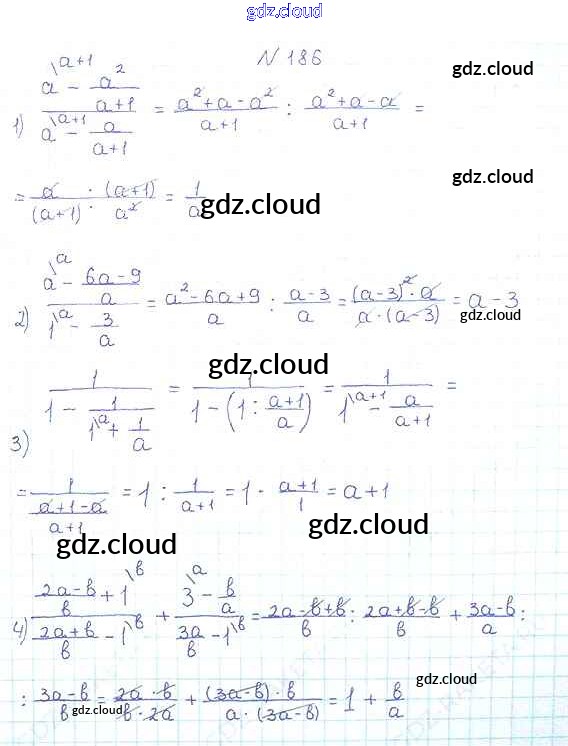 gdz.cloud
N 186
gdz.cloud
1) (a\a+1 − a²/(a+1)) / (a\a+1 − a/(a+1)) = (a²+a−a²)/(a+1) : (a²+a−a)/(a+1) =
gdz.cloud
= a/(a+1) : (a+1)/a² = 1/a
gdz.cloud
gdz.cloud
2) (a\a − (6a−9)/a) / (1\a − 3/a) = (a²−6a+9)/a : (a−3)/a = ((a−3)²·a)/(a·(a−3)) = a−3
gdz.cloud
gdz.cloud
3) 1/(1 − 1/(1\a + 1/a)) = 1/(1−(1:(a+1)/a)) = 1/(1\a+1 − a/(a+1)) =
= 1/((a+1−a)/(a+1)) = 1 : 1/(a+1) = 1 · (a+1)/1 = a+1
gdz.cloud
gdz.cloud
4) ((2a−b)/b + 1\b) / ((2a+b)/b − 1\b) + (3\a − b/a) / (3a/b − 1\b) = (2a−b+b)/b : (2a+b−b)/b + (3a−b)/a :
gdz.cloud
: (3a−b)/b = (2a·b)/(b·2a) + ((3a−b)·b)/(a·(3a−b)) = 1 + b/a
gdz.cloud
gdz.cloud